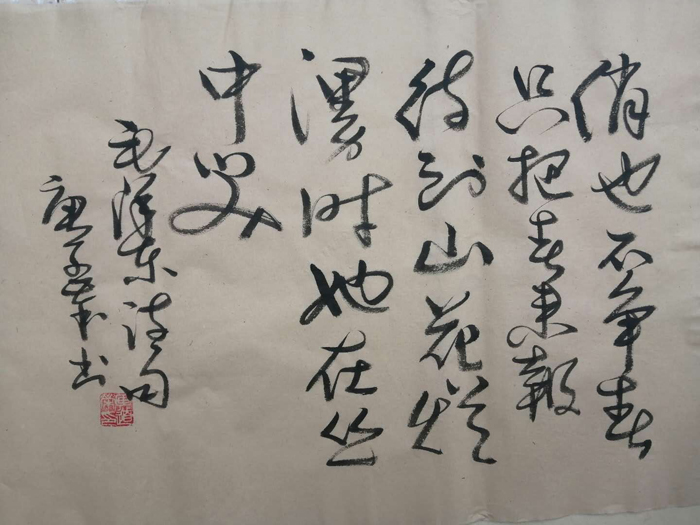 俏也不争春
只把春来報
待到山花烂
漫时她在丛
中笑
毛泽东诗句
庚子 书